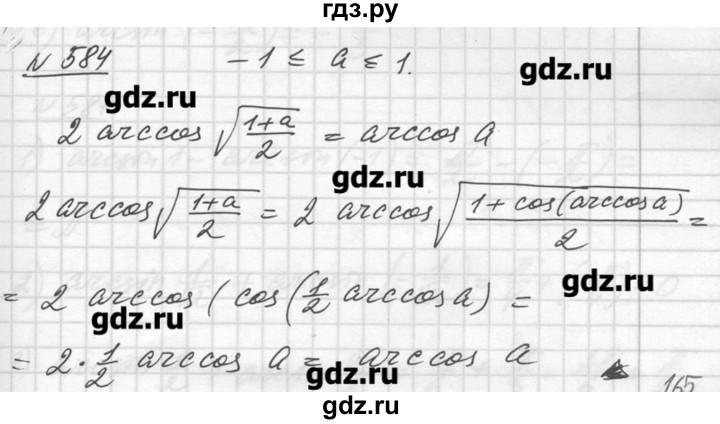 гдз.ру
N 584 -1 ≤ a ≤ 1.
gdz.ru
gdz.ru
2 arccos √((1+a)/2) = arccos a
gdz.ru
2 arccos √((1+a)/2) = 2 arccos √((1 + cos(arccos a))/2) =
gdz.ru
= 2 arccos (cos(1/2 arccos a) =
gdz.ru
= 2 · 1/2 arccos a = arccos a
gdz.ru
165
gdz.ru